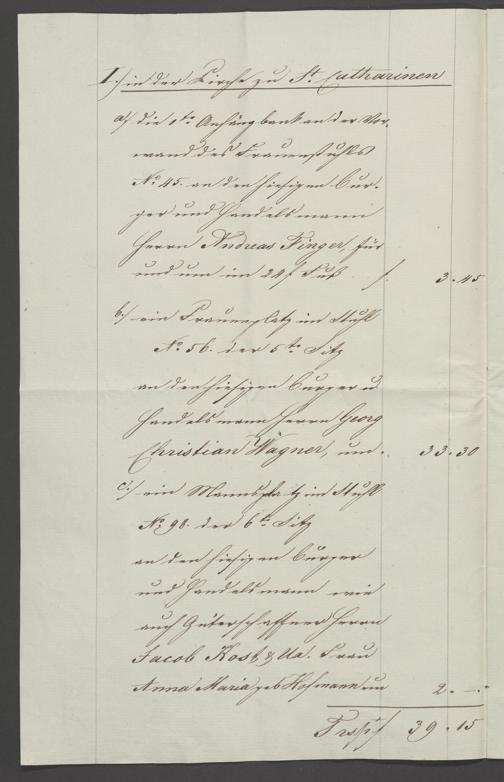 I.) in der Kirche zu St. Catharinen
a) die 1te Anhängbank an der Vor-
wand des Frauenstuhls
No. 45. an den hiesigen Bur-
ger und Handelsmann
Herrn Andreas Finger, für
und um im 24 f Fuß f. 3.45
b.) ein Frauenplatz im Stuhl
No. 56. der 5te Sitz
an den hiesigen Burger u.
Handelsmann Herrn Georg
Christian Wagner, um. 33.30
c.) ein Mannsplatz im Stuhl
No. 98. der 6te Sitz
an den hiesigen Burger
und Handelsmann wie
auch Güterschaffner Herrn
Jacob Kost & Ux. Frau
Anna Maria geb Hofmann um 2.—.
Trsp. f 39.15